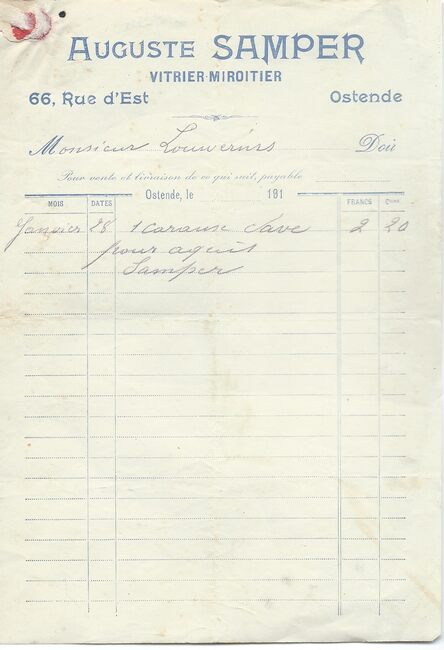 AUGUSTE SAMPER
VITRIER-MIROITIER
66, Rue d'Est Ostende
Monsieur Doit
Pour vente et livraison de ce qui suit, payable
Ostende, le 191
MOIS DATES FRANCS CMES
Janvier 28 1 2 20
pour aquit
Samper